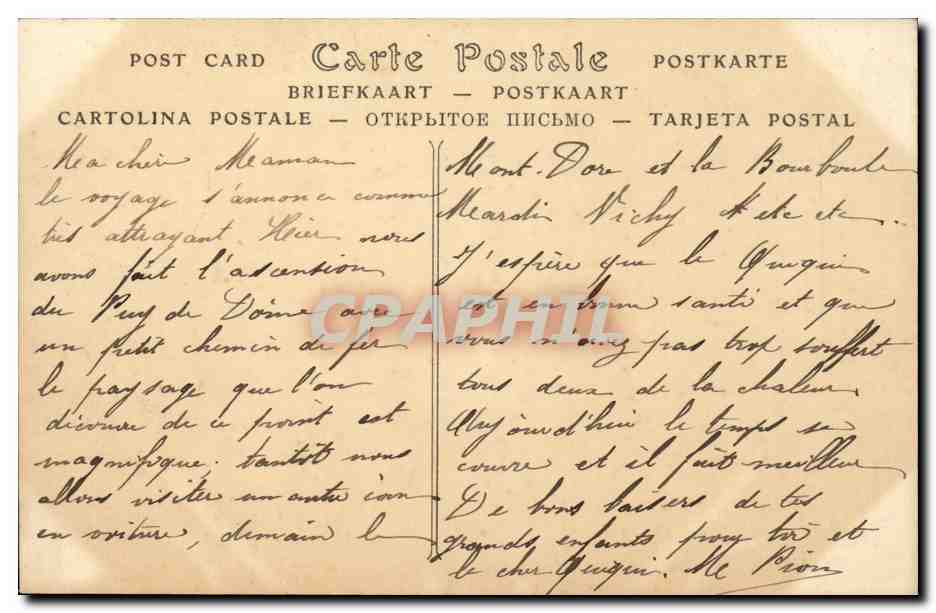 POST CARD Carte Postale POSTKARTE
BRIEFKAART — POSTKAART
CARTOLINA POSTALE — ОТКРЫТОЕ ПИСЬМО — TARJETA POSTAL
Ma cher Maman
le voyage s'annonce comme
très attrayant. Hier nous
avons fait l'ascension
du Puy de Dôme avec
un petit chemin de fer
le paysage que l'on
découvre de ce point est
magnifique. tantôt nous
allons visiter un autre coin
en voiture, demain le
Mont-Dore et la Bourboule
Mardi Vichy etc etc..
J'espère que le Quiqui
est en bonne santé et que
vous n'avez pas trop souffert
tous deux de la chaleur.
Aujourd'hui le temps se
couvre et il fait meilleur
De bons baisers de tes
grands enfants pour toi et
le cher Quiqui.
CPAPHIL